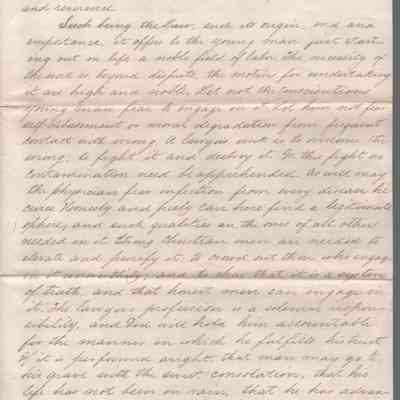 and reverence.
Such being the law, such its origin, and and
importance, it offers to the young man just start-
ing out on life a noble field of labor. The necessity of
the work is beyond dispute, the motives for undertaking
it are high and noble. Let not the conscientious
young man fear to engage in it. Let him not fear
self-abasement or moral degradation from frequent
contact with wrong. A lawyer's work is to
wrong, to fight it and destroy it. In this fight no
contamination need be apprehended. As well may
the physician fear infection from every disease he
cures. Honesty and piety can here find a legitimate
sphere, and such qualities are the ones of all others
needed in it. Strong Christian men are needed to
elevate and purify it, to crowd out those who engage
in it unworthily, and to show that it is a system
of truth, and that honest men can engage in
it. The lawyers profession is a solemn respon-
sibility, and God will hold him accountable
for the manner in which he fulfills his trust.
If it is performed aright, that man may go to
his grave with the sweet consolation, that his
life has not been in vain, that he has advan-